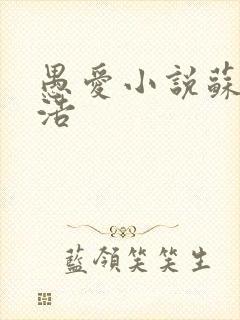 愚愛小說蘇
活
藍領笑笑生